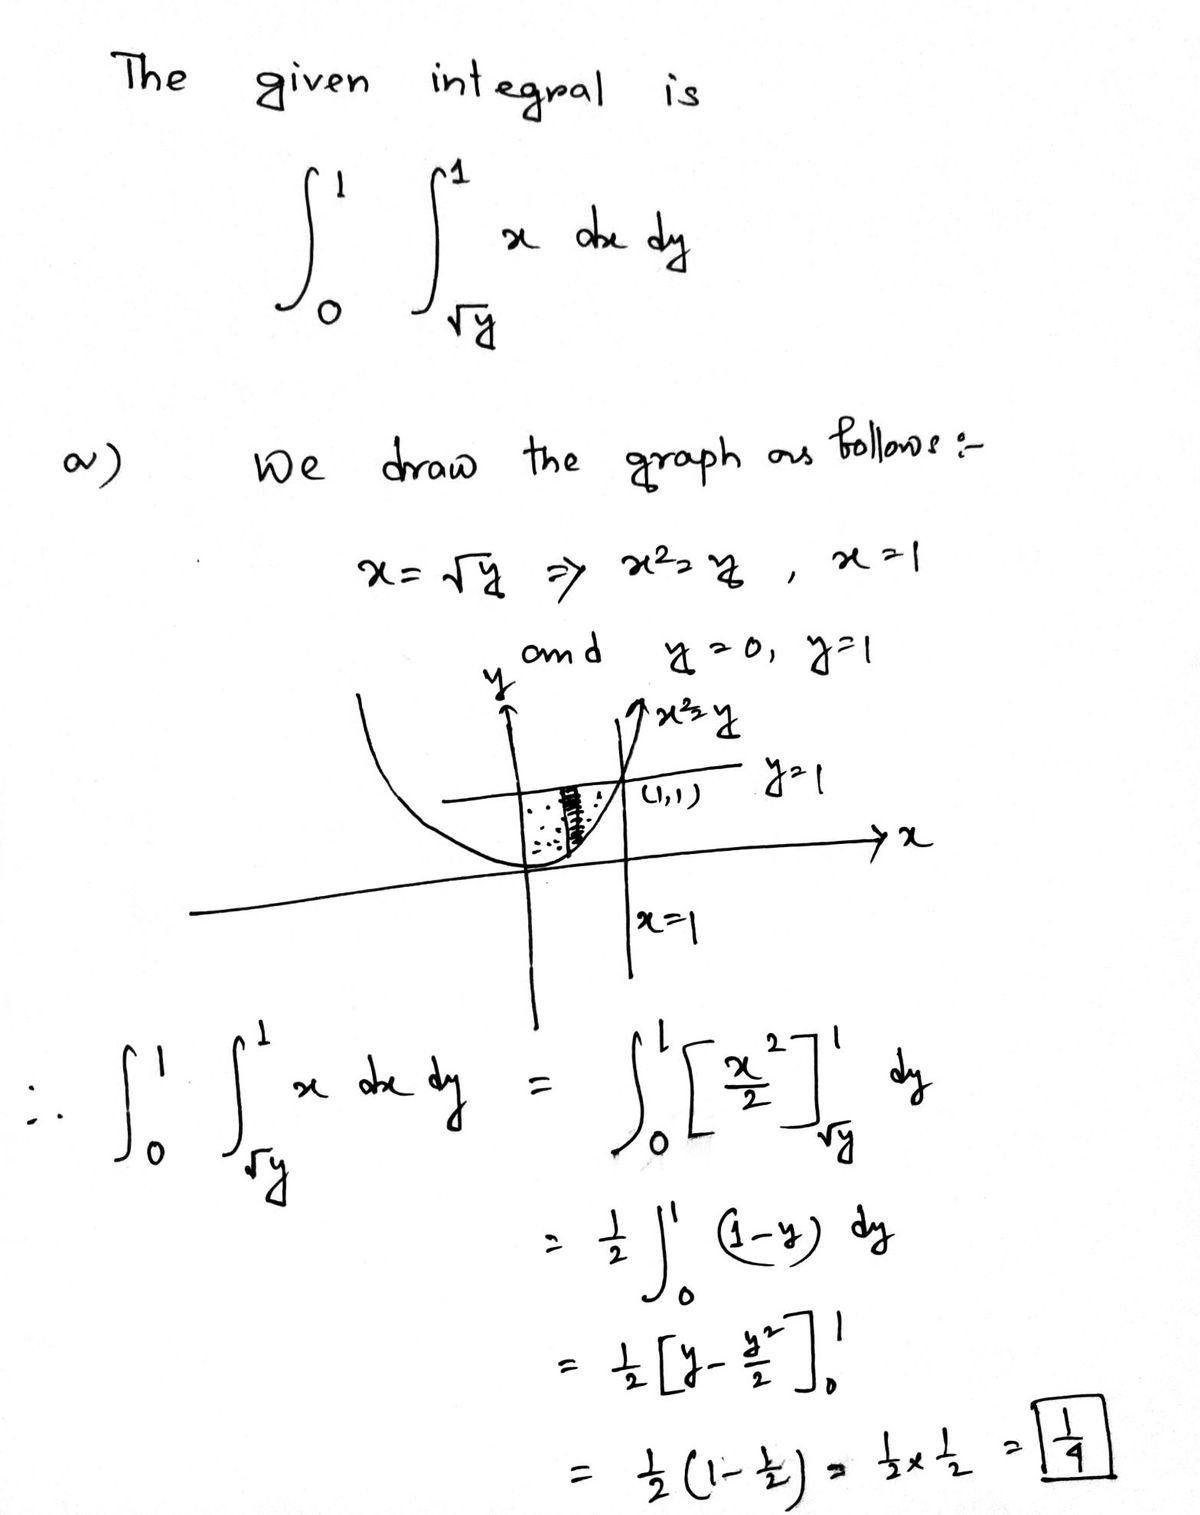 The given integral is
∫₀¹ ∫_√y^1 x dx dy
a) We draw the graph as follows :-
x = √y ⇒ x² = y , x = 1
and y = 0, y = 1
y
x² = y
y = 1
(1,1)
x
x = 1
∴ ∫₀¹ ∫_√y^1 x dx dy = ∫₀¹ [x²/2]_√y^1 dy
= 1/2 ∫₀¹ (1-y) dy
= 1/2 [y - y²/2]₀¹
= 1/2 (1 - 1/2) = 1/2 × 1/2 = 1/4